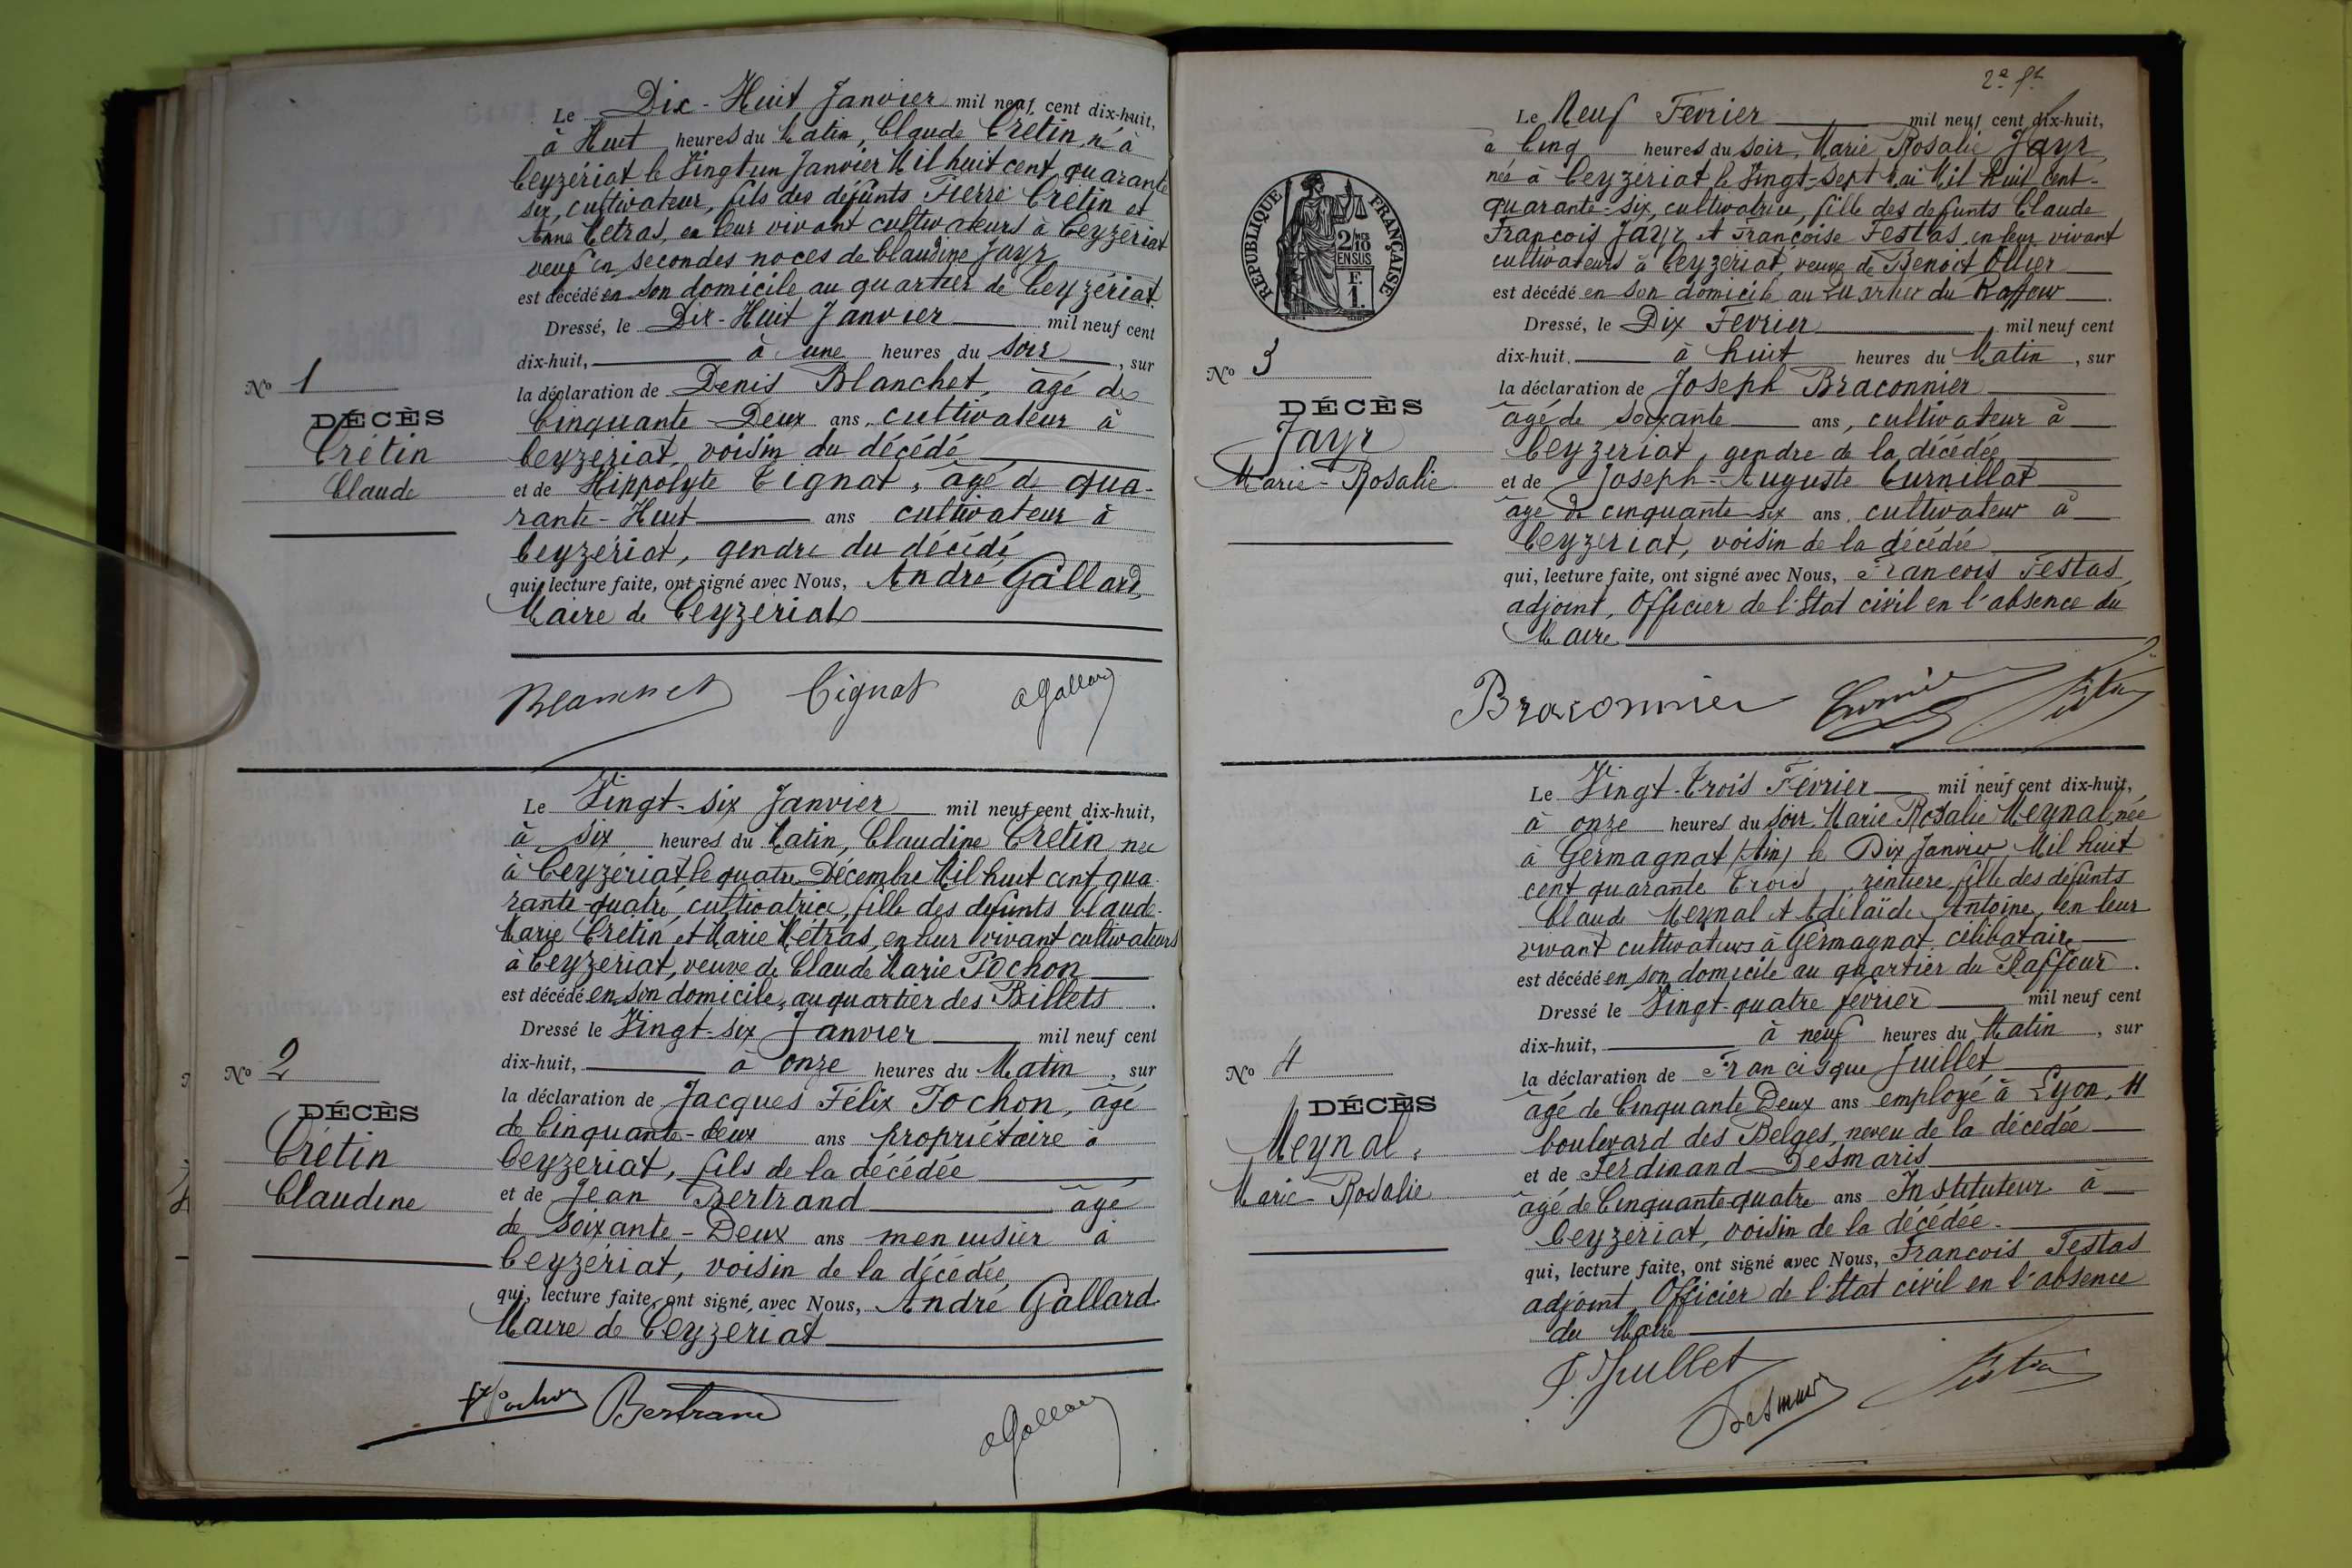 Le Dix-Huit Janvier mil neuf cent dix-huit,
à Huit heures du Matin, Claude Crétin, né à
Ceyzériat le Vingt un Janvier Mil huit cent quarante
six, cultivateur, fils des défunts Pierre Crétin et
Anne Métras, en leur vivant cultivateurs à Ceyzériat
veuf en secondes noces de Claudine Jayr
est décédé en son domicile au quartier de Ceyzériat.
Dressé, le Dix-Huit Janvier mil neuf cent
dix-huit, à une heures du soir, sur
la déclaration de Denis Blanchet, âgé de
Cinquante-Deux ans, cultivateur à
Ceyzériat, voisin du décédé
et de Hippolyte Tignat, âgé de qua-
rante-Huit ans cultivateur à
Ceyzériat, gendre du décédé,
qui, lecture faite, ont signé avec Nous, André Gallard,
Maire de Ceyzériat
No 1
DÉCÈS
Crétin
Claude
Blanchet Tignat A Gallard
Le Vingt-six Janvier mil neuf cent dix-huit,
à six heures du Matin, Claudine Crétin née
à Ceyzériat le quatre Décembre Mil huit cent qua-
rante-quatre, cultivatrice, fille des défunts Claude-
Marie Crétin et Marie Métras, en leur vivant cultivateurs
à Ceyzériat, veuve de Claude Marie Pochon
est décédé en son domicile, au quartier des Billets.
Dressé le Vingt-six Janvier mil neuf cent
dix-huit, à onze heures du Matin, sur
la déclaration de Jacques Félix Pochon, âgé
de Cinquante-deux ans propriétaire à
Ceyzériat, fils de la décédée
et de Jean Bertrand âgé
de soixante-Deux ans menuisier à
Ceyzériat, voisin de la décédée,
qui, lecture faite, ont signé, avec Nous, André Gallard
Maire de Ceyzériat
No 2
DÉCÈS
Crétin
Claudine
Pochon Bertrand A Gallard
2e ft
RÉPUBLIQUE FRANÇAISE
2/10 MES
EN SUS
F.
1.
Le Neuf Février mil neuf cent dix-huit,
à Cinq heures du soir, Marie Rosalie Jayr,
née à Ceyzériat le Vingt-sept Mai Mil huit cent-
quarante-six, cultivatrice, fille des défunts Claude
François Jayr et Françoise Festas, en leur vivant
cultivateurs à Ceyzériat, veuve de Benoit Ollier
est décédé en son domicile au Quartier du Raffour.
Dressé, le Dix Février mil neuf cent
dix-huit. à huit heures du Matin, sur
la déclaration de Joseph Braconnier
âgé de soixante ans, cultivateur à
Ceyzériat, gendre de la décédée,
et de Joseph-Auguste Curnillat
âgé de cinquante-six ans. cultivateur à
Ceyzériat, voisin de la décédée
qui, lecture faite, ont signé avec Nous, François Festas,
adjoint, Officier de l'Etat civil en l'absence du
Maire
No 3
DÉCÈS
Jayr
Marie-Rosalie
Braconnier
Le Vingt-Trois Février mil neuf cent dix-huit,
à onze heures du soir. Marie Rosalie Meynal, née
à Germagnat (Ain) le Dix Janvier Mil huit
cent quarante Trois, rentière, fille des défunts
Claude Meynal et Adélaïde Antoine, en leur
vivant cultivateurs à Germagnat, célibataire
est décédé en son domicile au quartier du Raffour.
Dressé le Vingt-quatre février mil neuf cent
dix-huit, à neuf heures du Matin, sur
la déclaration de Francisque Juillet
âgé de Cinquante Deux ans employé à Lyon, 11
boulevard des Belges, neveu de la décédée
et de Ferdinand Desmaris
âgé de Cinquante-quatre ans Instituteur à
Ceyzériat, voisin de la décédée.
qui, lecture faite, ont signé avec Nous, François Festas
adjoint, Officier de l'Etat civil en l'absence
du Maire
No 4
DÉCÈS
Meynal,
Marie-Rosalie
F. Juillet Desmaris Festas